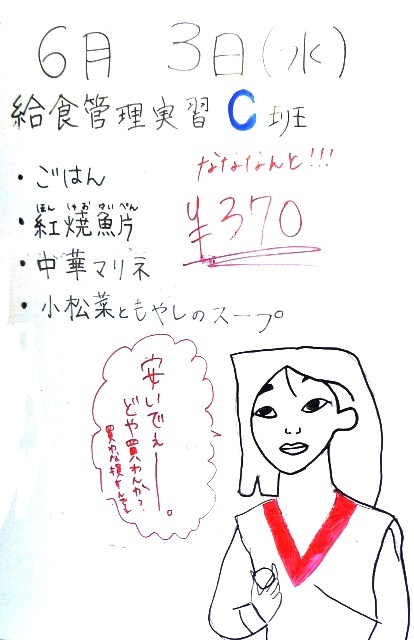 6月 3日(水)
給食管理実習 C 班
なななんと!!!
¥370
・ごはん
ほん しゃお ゆい ぺん
・紅焼魚片
・中華マリネ
・小松菜ともやしのスープ
安いでぇー。
どや買わんか?
買わな損すんで